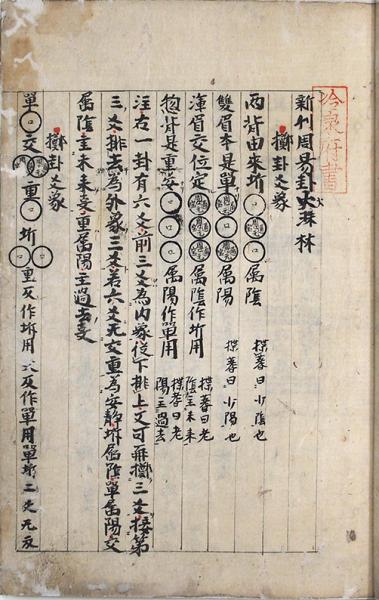 冷泉府書
新刊周易卦火珠林
擲卦爻象
兩背由來坼 属陰 揲蓍曰少陰也
雙眉本是單 属陽 揲蓍曰少陽也
渾眉交位定 属陰作坼用 揲蓍曰老陰主未来
惣背是重安 属陽作單用 揲蓍曰老陽主過去
注右一卦有六爻前三爻為内象從下排上又可再擲三爻接第
三爻排去為外象三爻若六爻无交重為安静坼属陰單属陽交
属陰主未来变重属陽主過去变
擲卦爻象
單 交 重 坼 重反作坼用 反作單用單坼二爻无反